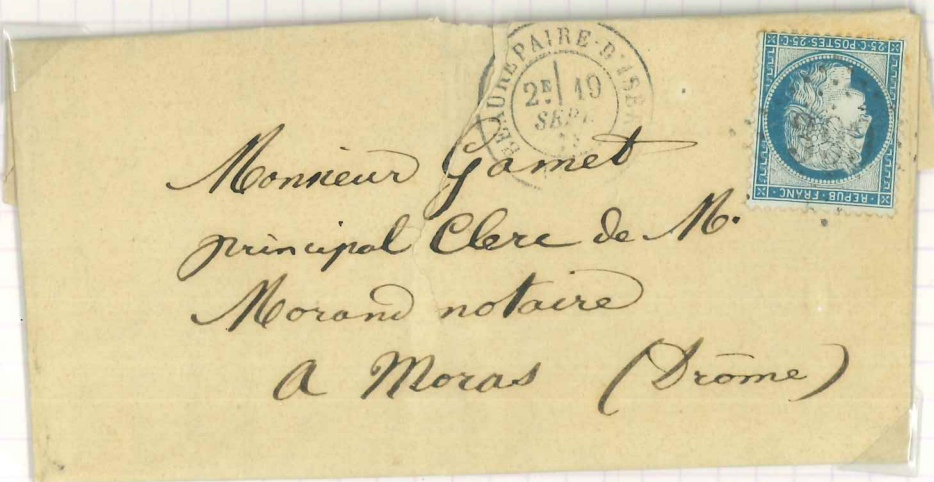 BEAUREPAIRE-D'ISÈRE
2E 19
SEPT
25·C·POSTES·25·C
REPUB·FRANC
Monsieur Gamet
principal Clerc de M.
Morand notaire
a Moras (Drôme)